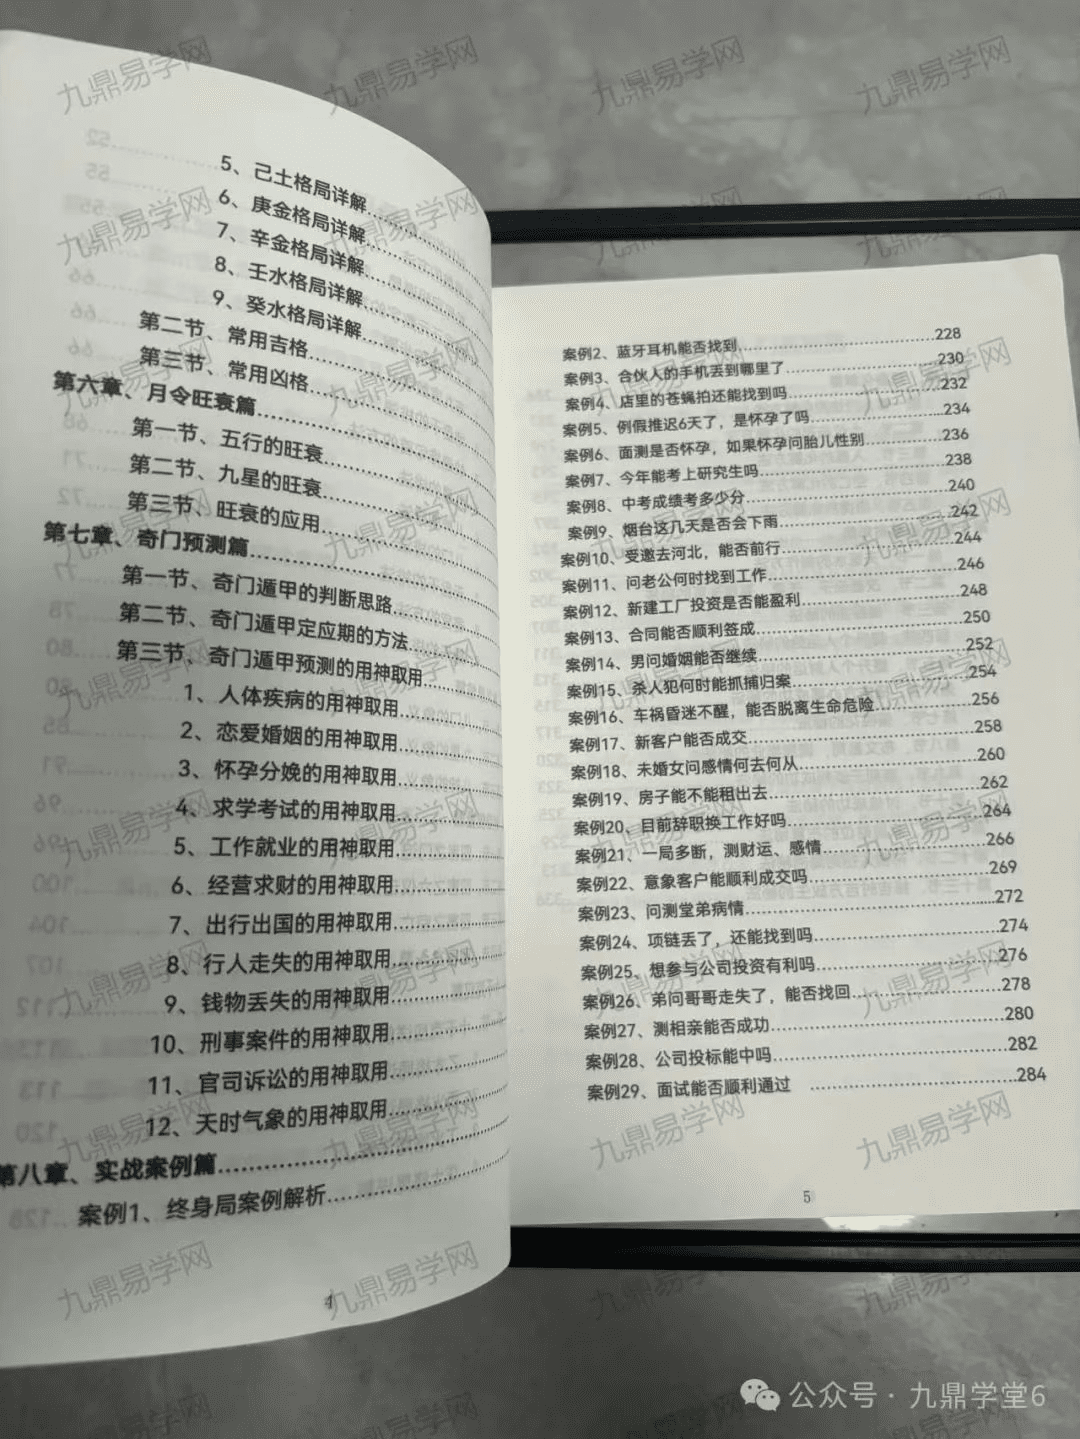 5、己土格局详解
6、庚金格局详解
7、辛金格局详解
8、壬水格局详解
9、癸水格局详解
第二节、常用吉格
第三节、常用凶格
第六章、月令旺衰篇
第一节、五行的旺衰
第二节、九星的旺衰
第三节、旺衰的应用
第七章、奇门预测篇
第一节、奇门遁甲的判断思路
第二节、奇门遁甲定应期的方法
第三节、奇门遁甲预测的用神取用
1、人体疾病的用神取用
2、恋爱婚姻的用神取用
3、怀孕分娩的用神取用
4、求学考试的用神取用
5、工作就业的用神取用
6、经营求财的用神取用
7、出行出国的用神取用
8、行人走失的用神取用
9、钱物丢失的用神取用
10、刑事案件的用神取用
11、官司诉讼的用神取用
12、天时气象的用神取用
第八章、实战案例篇
案例1、终身局案例解析
4
案例2、蓝牙耳机能否找到 228
案例3、合伙人的手机丢到哪里了 230
案例4、店里的苍蝇拍还能找到吗 232
案例5、例假推迟6天了，是怀孕了吗 234
案例6、面测是否怀孕，如果怀孕问胎儿性别 236
案例7、今年能考上研究生吗 238
案例8、中考成绩考多少分 240
案例9、烟台这几天是否会下雨 242
案例10、受邀去河北，能否前行 244
案例11、问老公何时找到工作 246
案例12、新建工厂投资是否能盈利 248
案例13、合同能否顺利签成 250
案例14、男问婚姻能否继续 252
案例15、杀人犯何时能抓捕归案 254
案例16、车祸昏迷不醒，能否脱离生命危险 256
案例17、新客户能否成交 258
案例18、未婚女问感情何去何从 260
案例19、房子能不能租出去 262
案例20、目前辞职换工作好吗 264
案例21、一局多断，测财运、感情 266
案例22、意象客户能顺利成交吗 269
案例23、问测堂弟病情 272
案例24、项链丢了，还能找到吗 274
案例25、想参与公司投资有利吗 276
案例26、弟问哥哥走失了，能否找回 278
案例27、测相亲能否成功 280
案例28、公司投标能中吗 282
案例29、面试能否顺利通过 284
5
九鼎易学网
公众号 · 九鼎学堂6